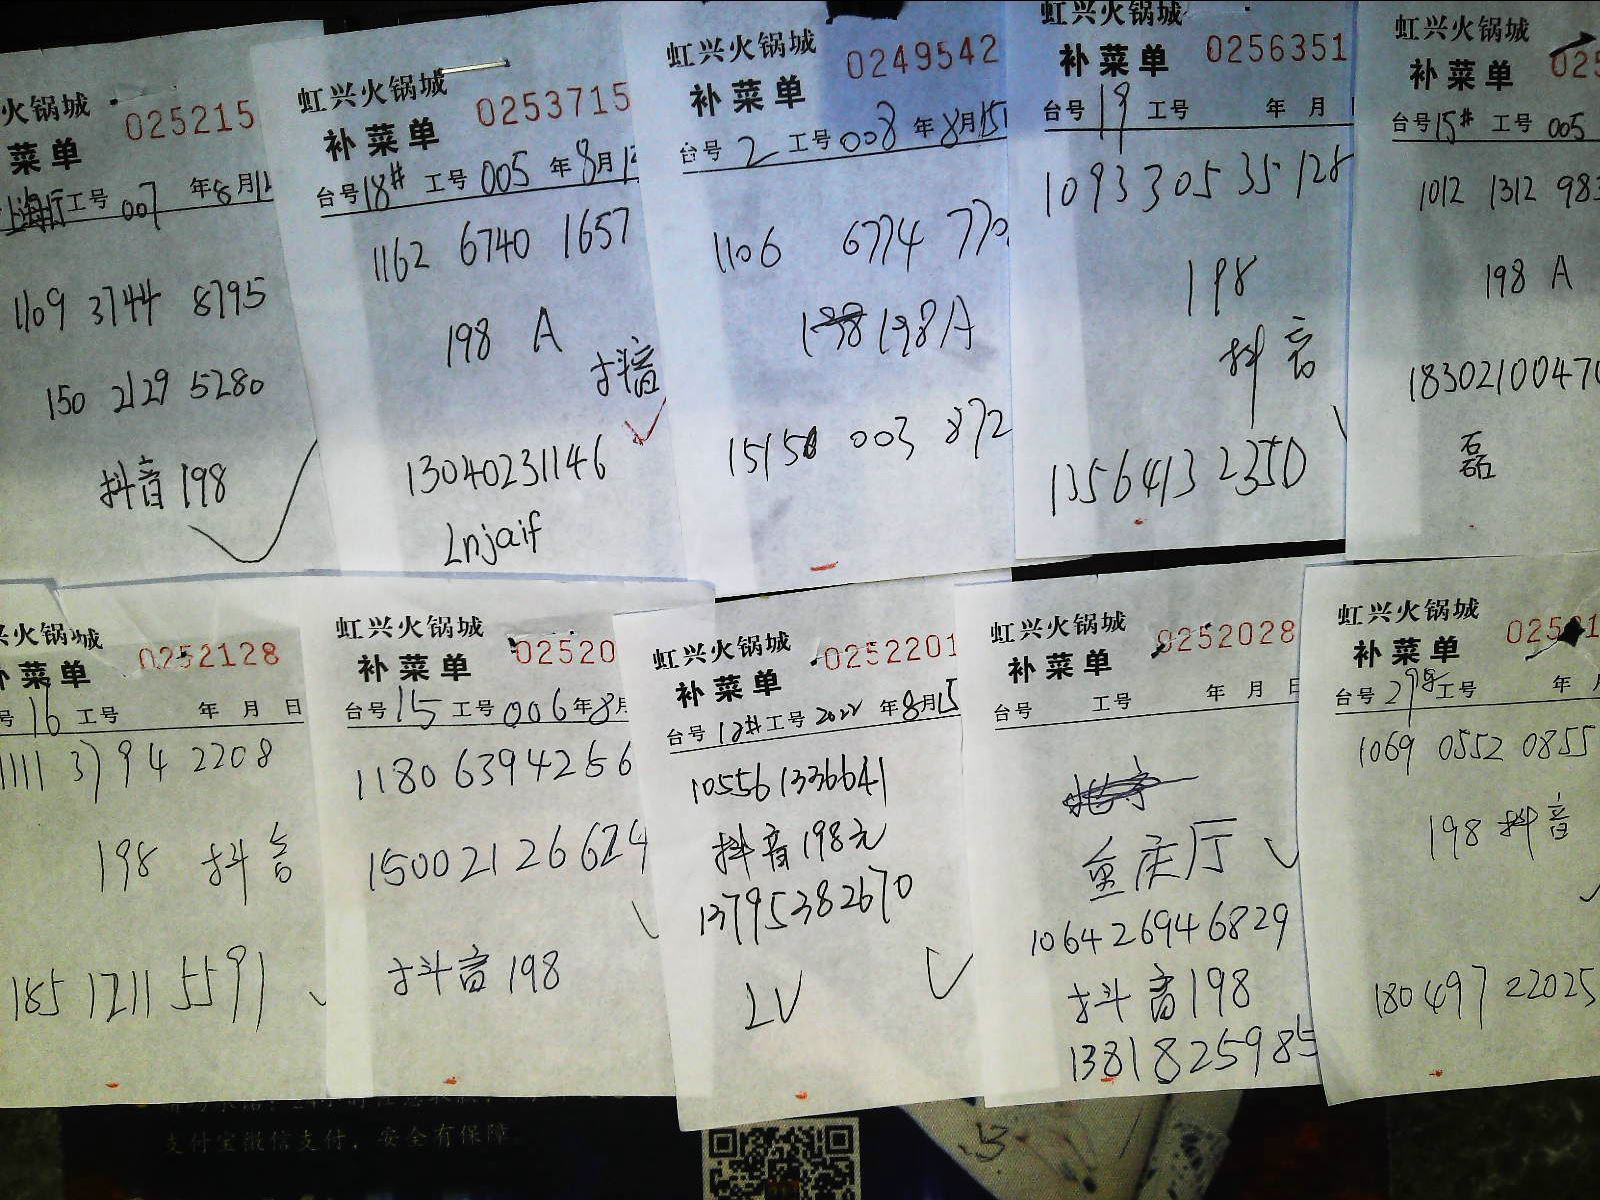 火锅城
菜单
025215
上海厅 工号 007 年 8 月 12
1109 3744 8795
150 2129 5280
抖音 198
虹兴火锅城
补菜单
0253715
台号 18# 工号 005 年 8 月
1162 6740 1657
198 A
抖音
13040231146
Lnjaif
虹兴火锅城
补菜单
0249542
台号 2 工号 008 年 8 月 15
1106 6774 770
198A
003 872
虹兴火锅城
补菜单
0256351
台号 19 工号 年 月
1093 305 35 128
198
抖音
13564132350
虹兴火锅城
补菜单
025
台号 15# 工号 005
1012 1312 983
198 A
1830210047
磊
火锅城
补菜单
0252128
号 16 工号 年 月 日
1111 3794 2208
198 抖音
185 1211 5591
虹兴火锅城
补菜单
02520
台号 15 工号 006 年 8 月
11806394256
15002126624
抖音 198
虹兴火锅城
补菜单
0252201
台号 12# 工号 2022 年 8 月 15
105561336641
抖音 198元
13795382670
LV
虹兴火锅城
补菜单
0252028
台号 工号 年 月 日
重庆厅
106426946829
抖音 198
1381825985
虹兴火锅城
补菜单
台号 工号 年 月
1069 0552 0855
198 抖音
180497 22025
支付宝微信支付，安全有保障